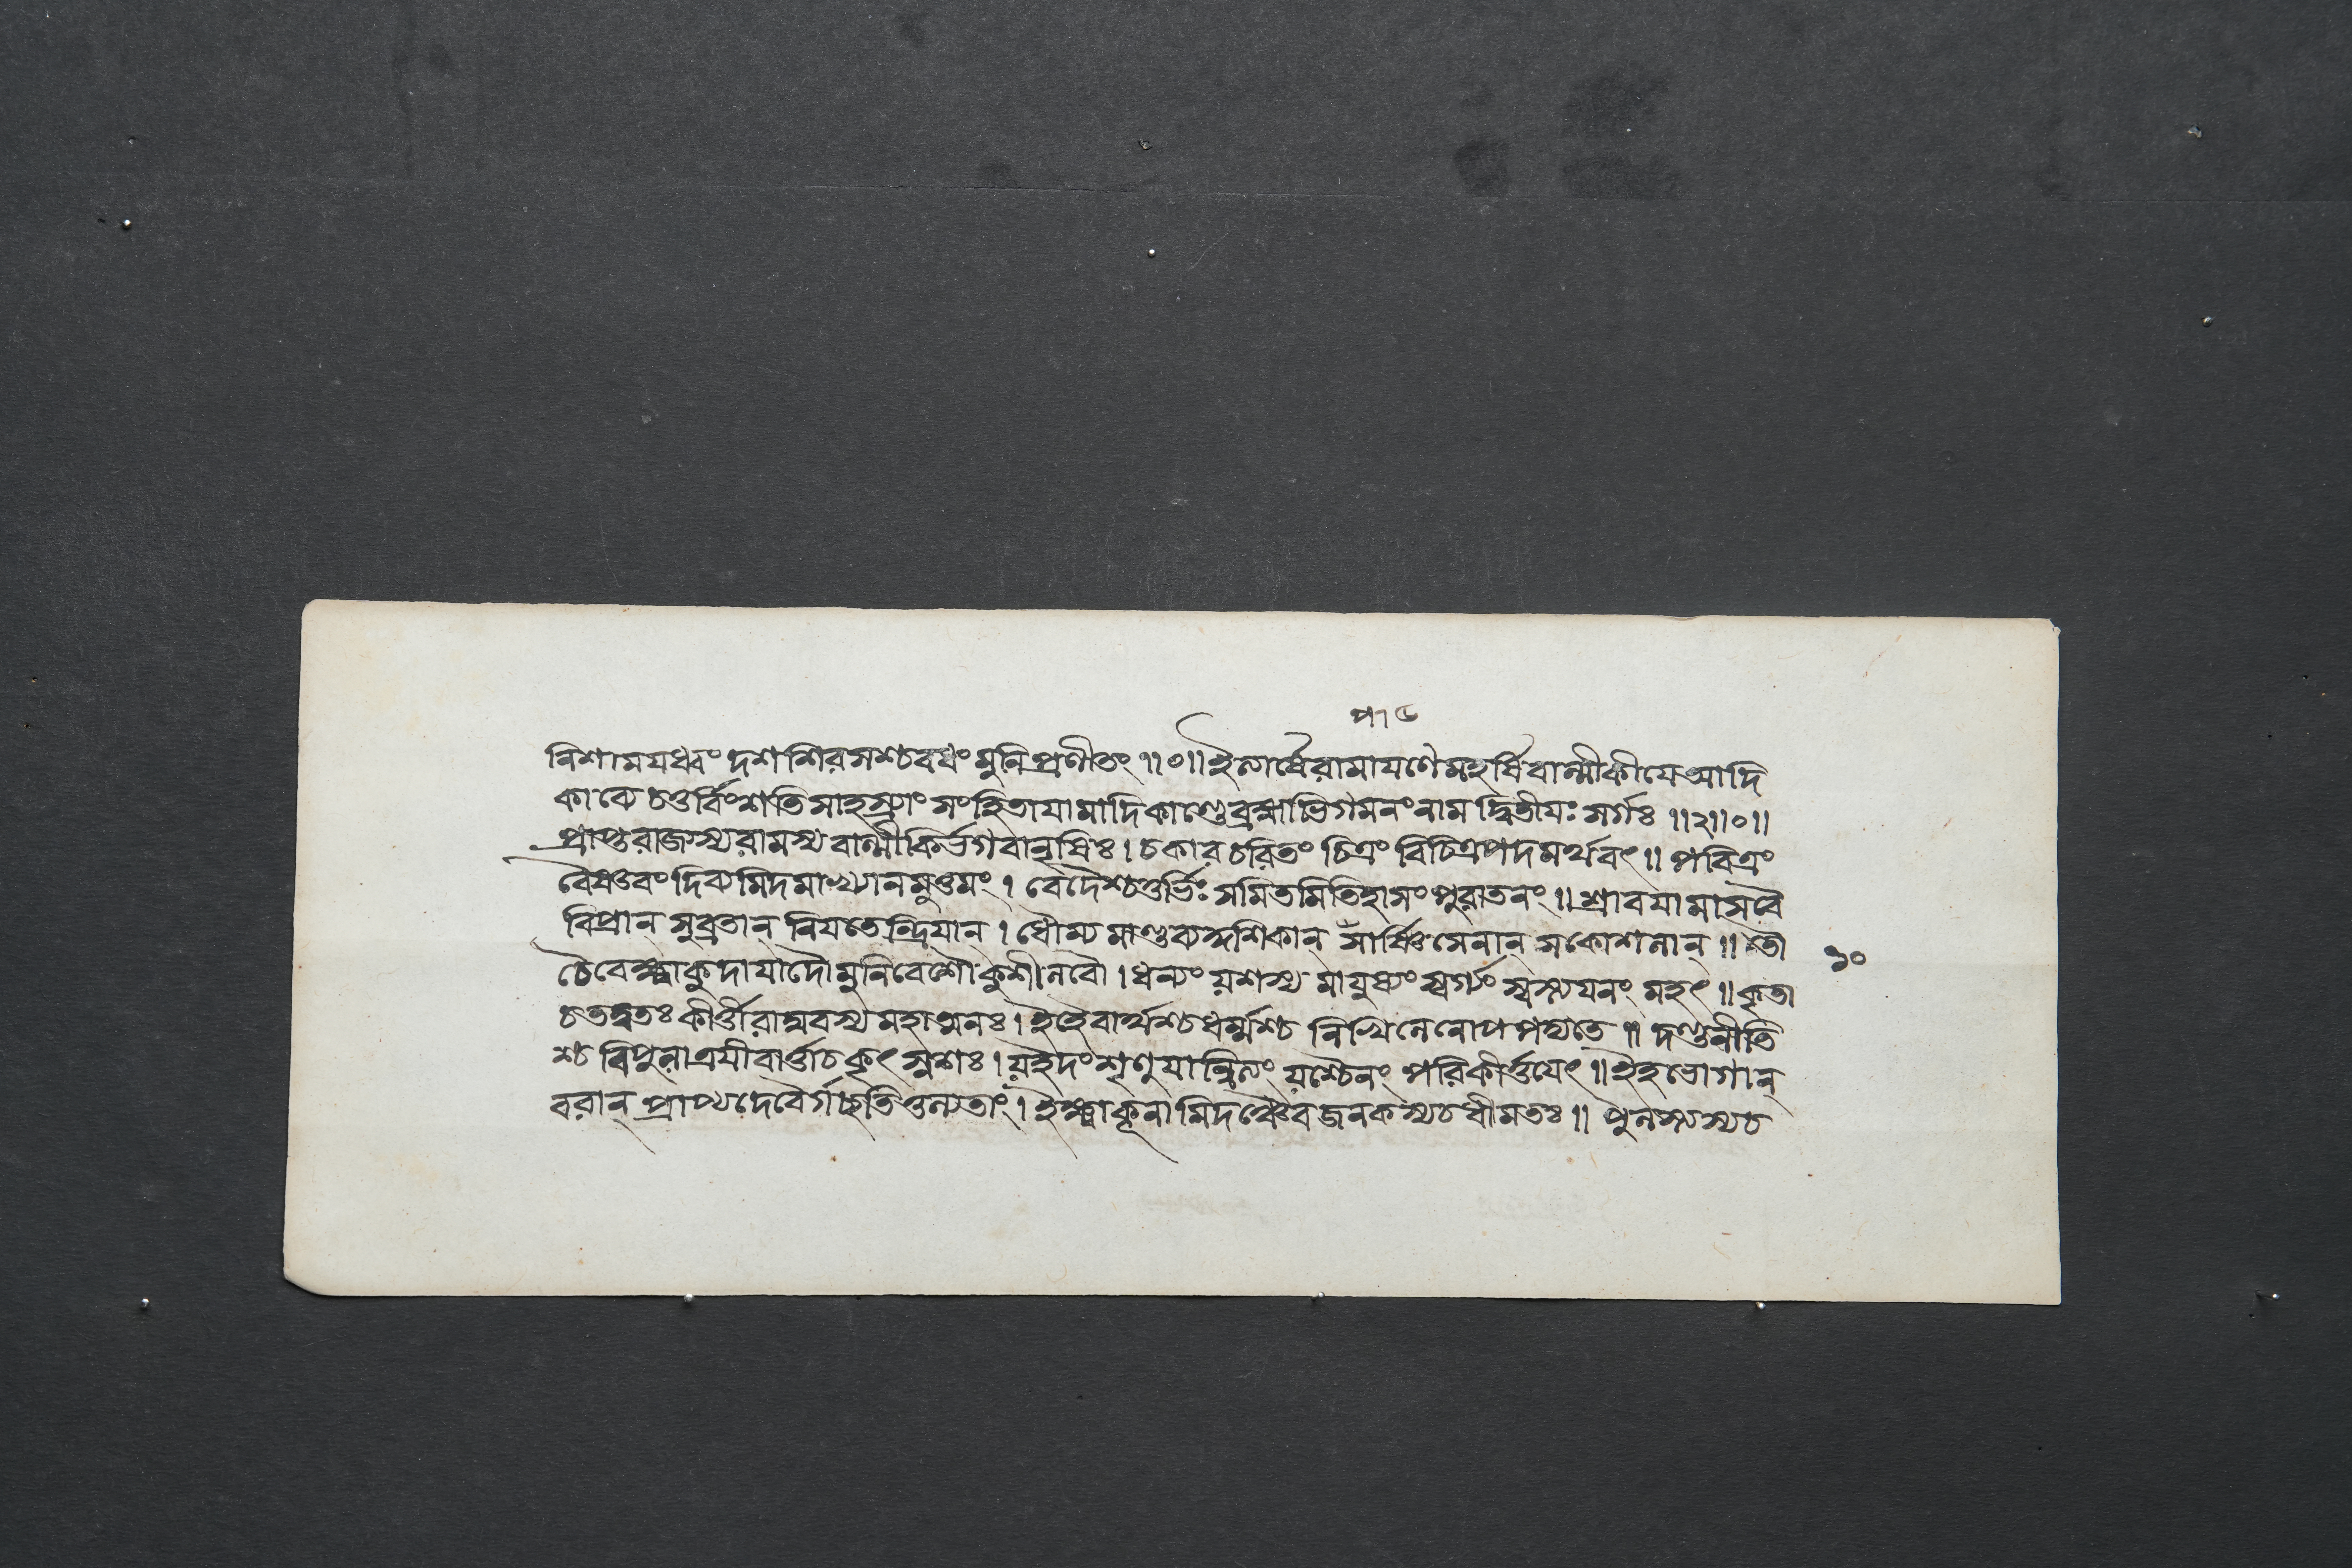 নিশাময়ধ্বং দশশিরসশ্চবধং মুনিপ্রণীতং ॥০॥ ইত্যার্ষেরামায়ণে মহর্ষিবাল্মীকীয়ে আদি
কাব্যে চতুর্ব্বিংশতিসাহস্র্যাং সংহিতায়ামাদিকাণ্ডে ব্রহ্মাভিগমনং নাম দ্বিতীয়ঃ সর্গঃ ॥২॥০॥
প্রাপ্তরাজ্যস্যরামস্যবাল্মীকির্ভগবানৃষিঃ। চকারচরিতং চিত্রং বিচিত্রপদমর্থবৎ॥ পবিত্রং
বৈষ্ণবং দিব্যমিদমাখ্যানমুত্তমং। বেদৈশ্চতুর্ভিঃ সমিতমিতিহাসং পুরাতনং॥ শ্রাবয়ামাসবৈ
বিপ্রান্ সুব্রতান্ নিয়তেন্দ্রিয়ান্। ধৌম্যমাণ্ডব্য সার্ষ্ণিসেনান্ সকোশলান্॥ তৌ
১০
চৈবেক্ষ্বাকুদায়াদৌমুনিবেশৌকুশীলবৌ। ধন্যং যশস্যমায়ুষ্যং স্বর্গ্যং স্বস্ত্যয়নং মহৎ॥ কৃতা
চতদ্বতঃ কীর্ত্তীরাঘবস্যমহাত্মনঃ। ইহৈবার্থশ্চধর্ম্মশ্চ নিখিলেনোপপদ্যতে॥ দণ্ডনীতি
শ্চ বিপুলাত্রয়ীবার্ত্তাচকৃৎস্নশঃ। যইদং শৃণুয়ান্নিত্যং যশ্চৈনং পরিকীর্ত্তয়েৎ॥ ইহভোগান্
বরান্ প্রাপ্যদেবৈর্গচ্ছতিতুল্যতাং। ইক্ষ্বাকূনামিদঞ্চৈবজনকস্যচধীমতঃ॥ পুলস্ত্যস্যচ